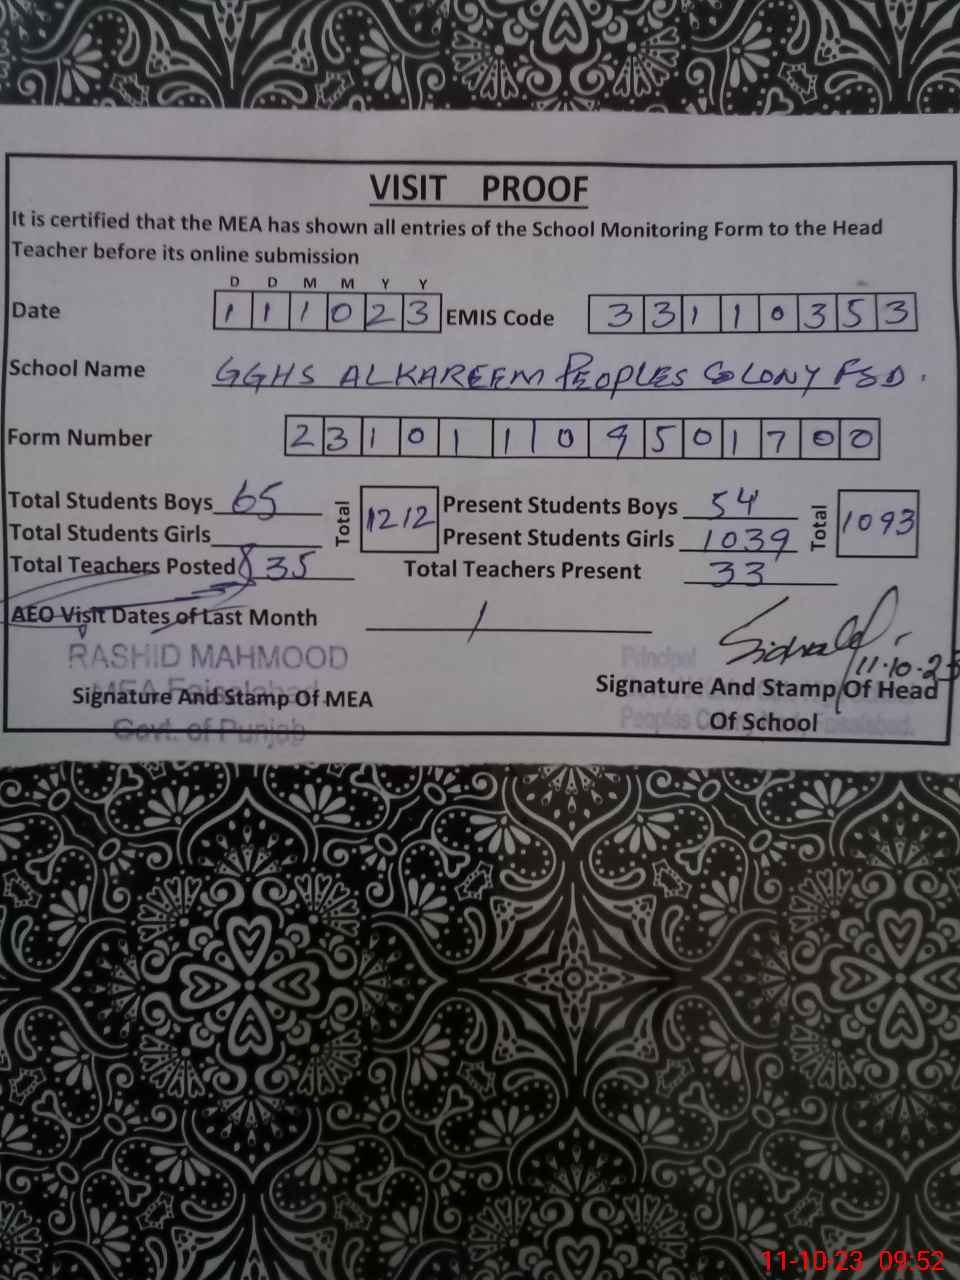 VISIT PROOF
It is certified that the MEA has shown all entries of the School Monitoring Form to the Head
Teacher before its online submission
D D M M Y Y
Date 1 1 1 0 2 3 EMIS Code 3 3 1 1 0 3 5 3
School Name GGHS ALKAREEM PEOPLES COLONY FSD.
Form Number 2 3 1 0 1 1 1 0 9 5 0 1 7 0 0
Total Students Boys 65 Total 1212 Present Students Boys 54 Total 1093
Total Students Girls Present Students Girls 1039
Total Teachers Posted 35 Total Teachers Present 33
AEO Visit Dates of Last Month /
11-10-23
RASHID MAHMOOD Principal
MEA Faisalabad
Signature And Stamp Of MEA Signature And Stamp Of Head
Govt. of Punjab Peoples Faisalabad.
Of School
11-10-23 09:52